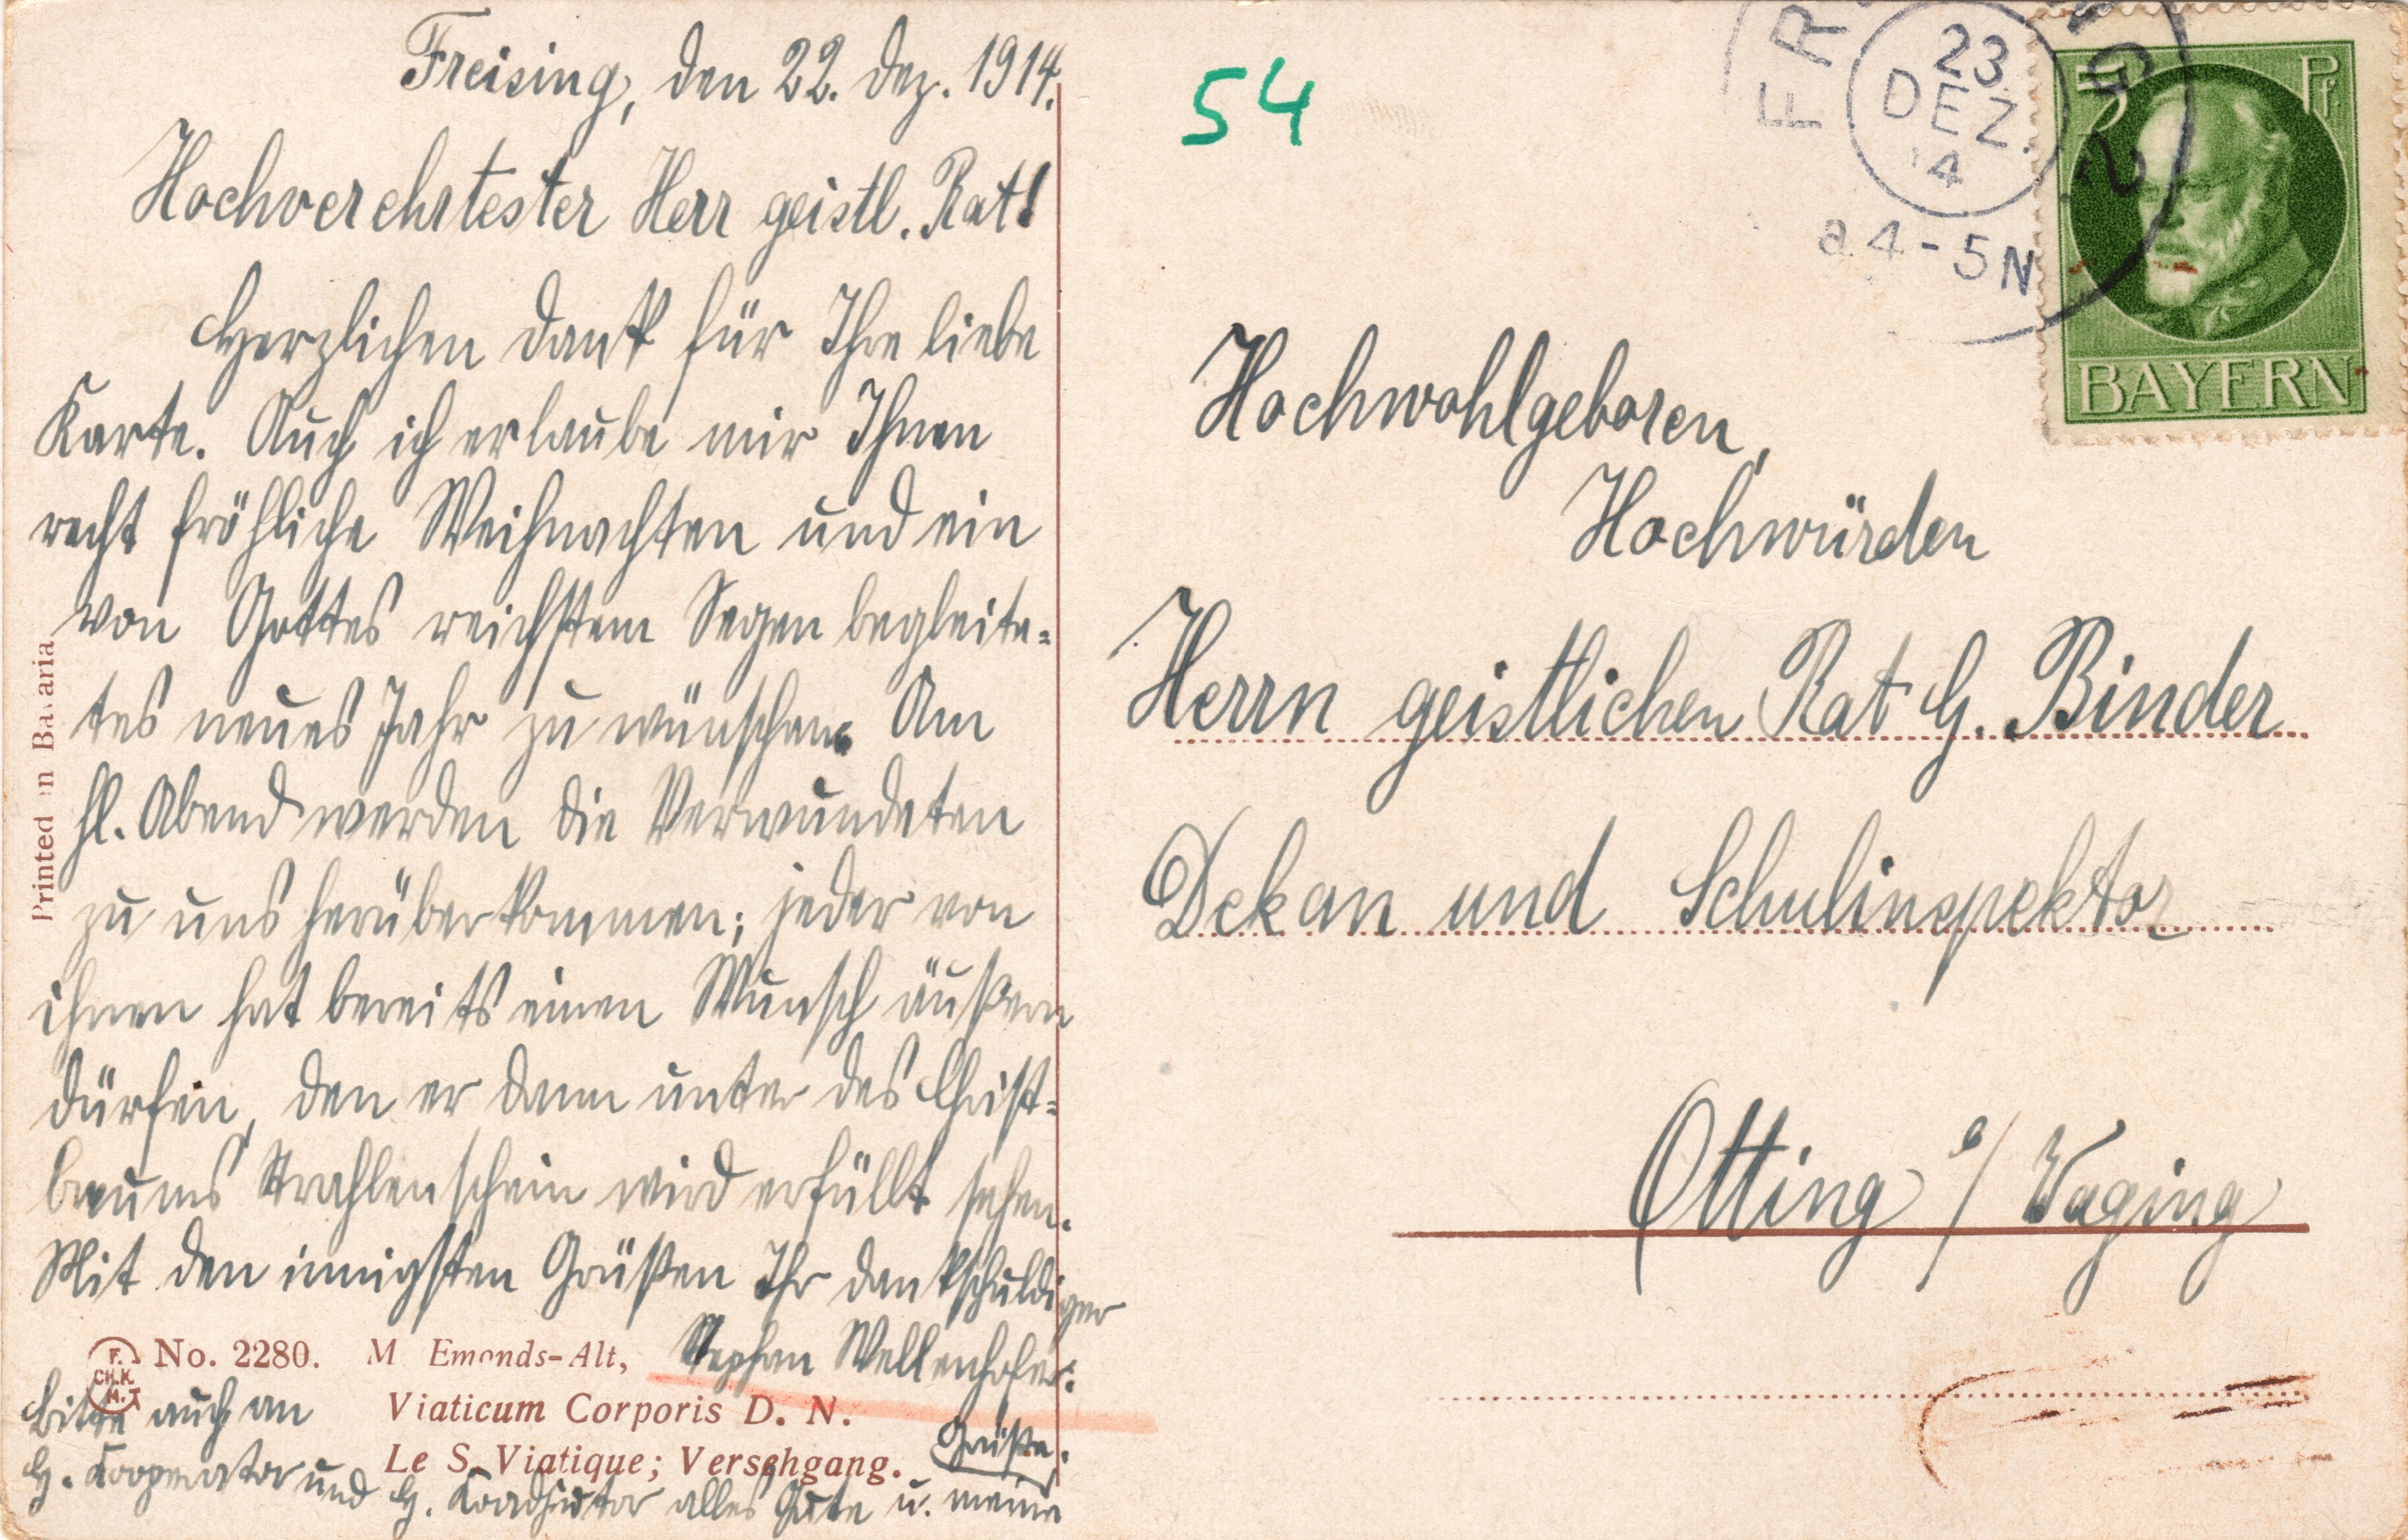 Freising, den 22. Dez. 1914.
Hochverehrtester Herr geistl. Rat!
Herzlichen Dank für Ihre liebe
Karte. Auch ich erlaube mir Ihnen
recht fröhliche Weihnachten und ein
von Gottes reichstem Segen begleite=
tes neues Jahr zu wünschen. Am
hl. Abend werden die Verwundeten
zu uns herüberkommen; jeder von
ihnen hat bereits einen Wunsch äußern
dürfen, den er dann unter des Christ=
baums Strahlenschein wird erfüllt sehen.
Mit den innigsten Grüßen Ihr dankschuldiger
Stephan Wellenhofer.
Bitte auch an
H. Kooperator und H. Koadjutor alles Gute u. meine
Grüße.
Printed in Bavaria
F.
CH.K.
M.
No. 2280. M. Emonds-Alt,
Viaticum Corporis D. N.
Le S. Viatique; Versehgang.
54
FREISING 2
23
DEZ.
14
a 4-5 N
5 Pf.
BAYERN
Hochwohlgeboren,
Hochwürden
Herrn geistlichen Rat H. Binder
Dekan und Schulinspektor
Otting a/ Waging